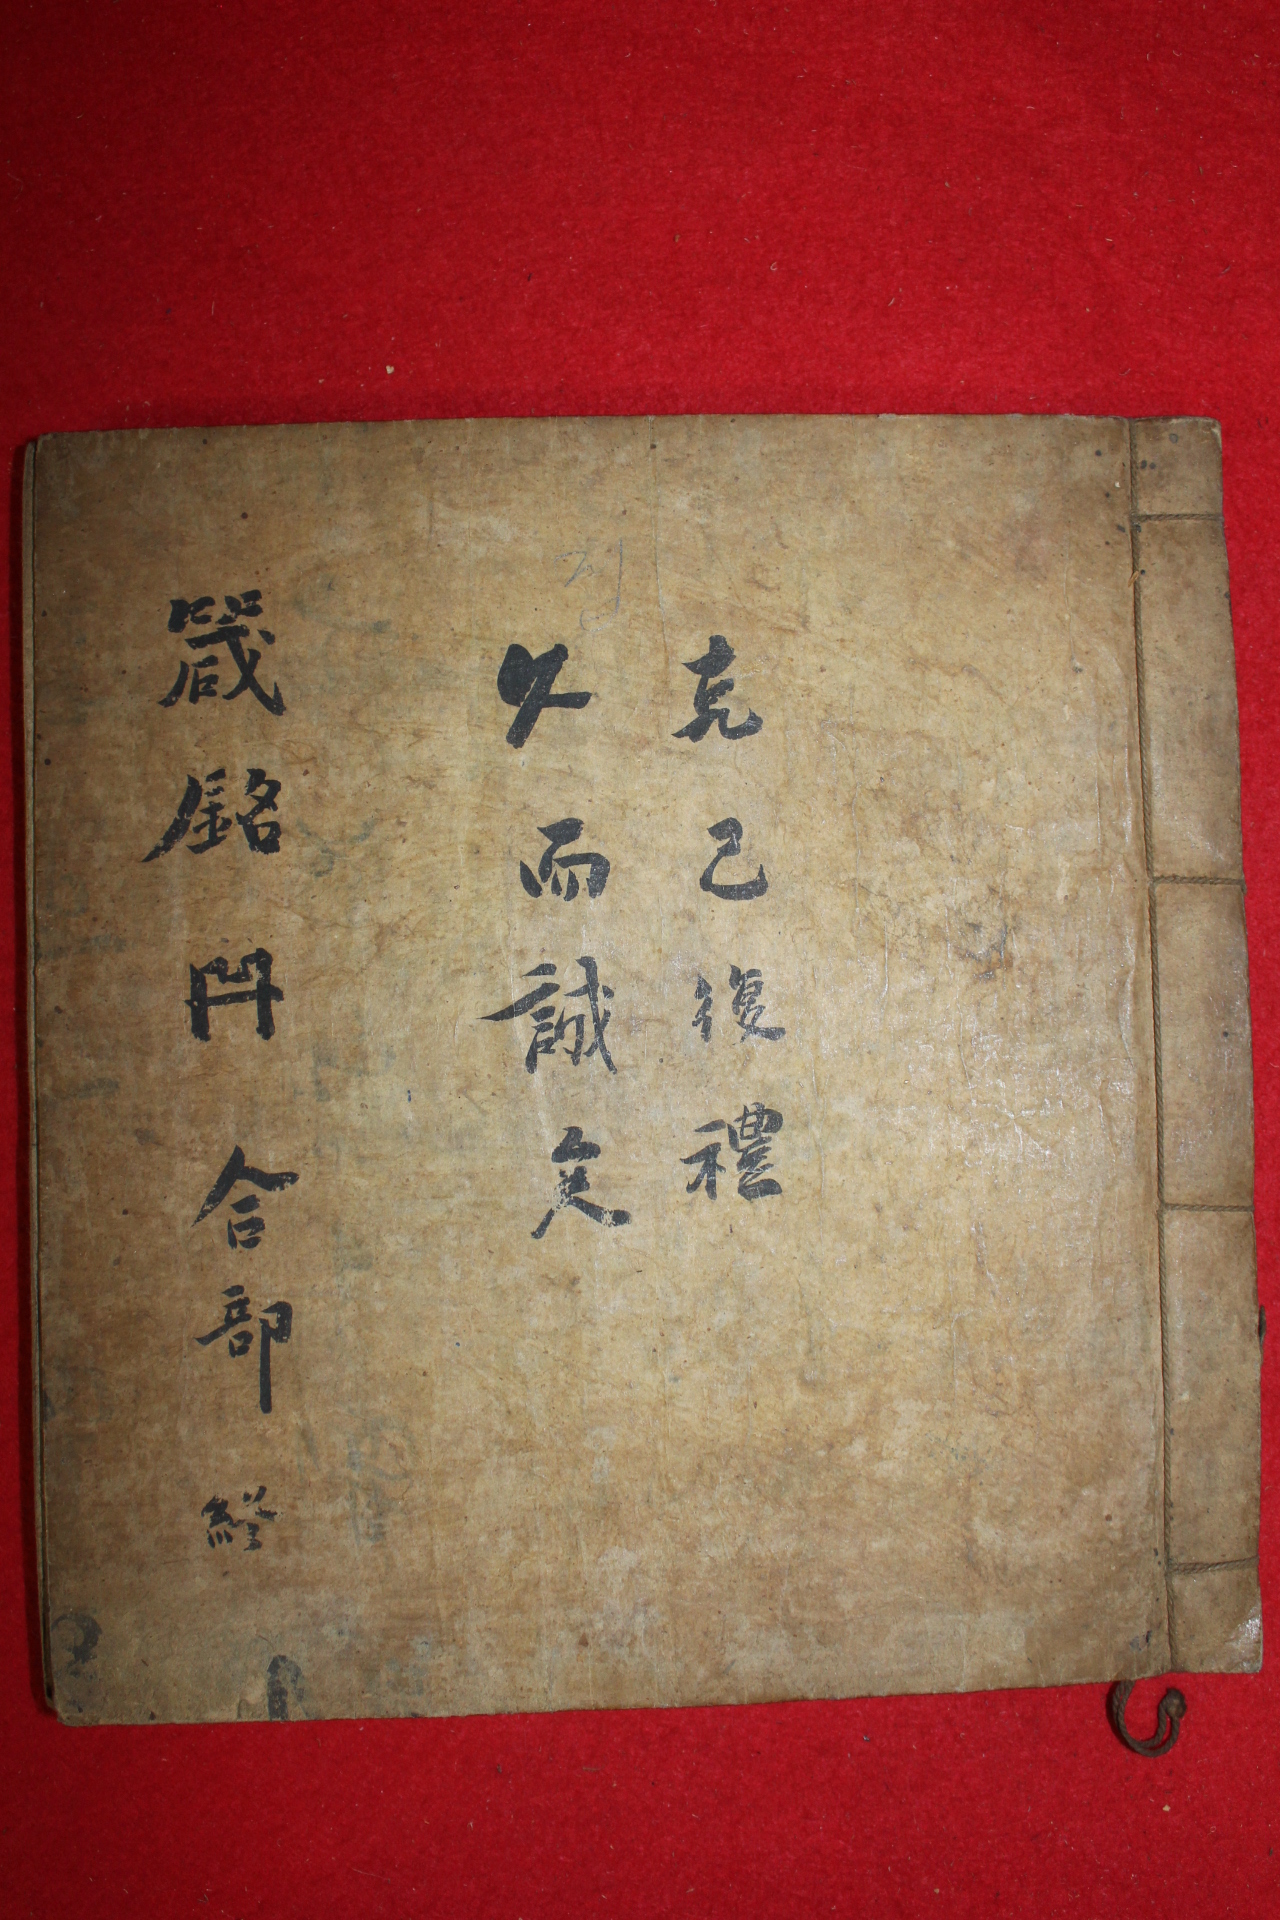 克己復禮
久而誠矣
箴銘冊合部終